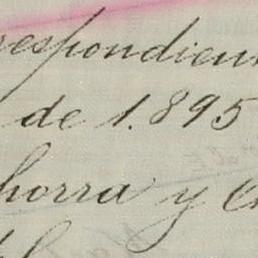 respondien
de 1.895
horra y